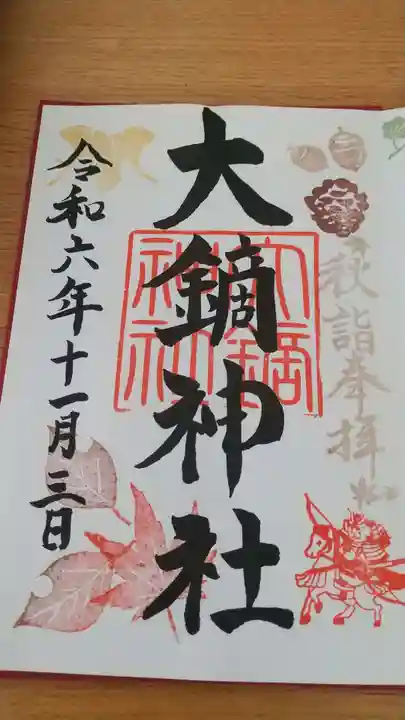 秋詣奉拝
大鏑神社
大鏑
神社
令和六年十一月三日